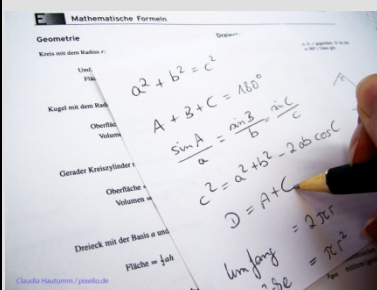 E Mathematische Formeln
Geometrie
Dreiec
Kreis mit dem Radius r:
Umf
Flä
Kugel mit dem Radi
Oberfläc
Volume
Gerader Kreiszylinder
Oberfläche
Volumen =
Dreieck mit der Basis a und
Fläche = ½ah
a² + b² = c²
A + B + C = 180°
sinA/a = sinB/b = sinC/c
c² = a² + b² - 2ab cosC
D = A + C
Umfang = 2πr
= πr²
Claudia Hautumm / pixelio.de